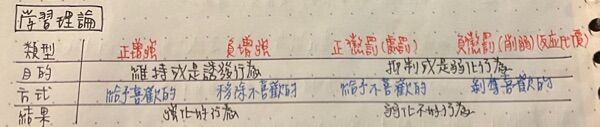 學習理論
類型 正增強 負增強 正懲罰(處罰) 負懲罰(削弱)(反应代價)
目的 維持或是誘發行為 抑制或是弱化行為
方式 給予喜歡的 移除不喜歡的 給予不喜歡的 剝奪喜歡的
結果 強化好行為 弱化不好行為